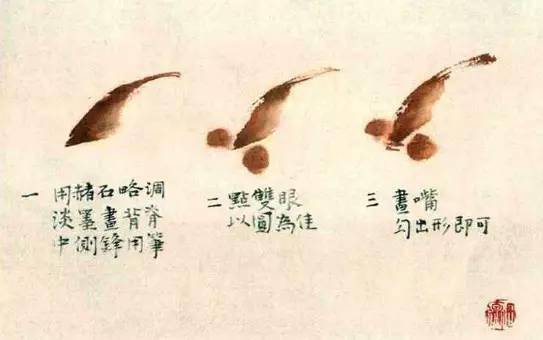 一 用赭石略調
淡墨畫背脊
中側鋒用筆
二 點雙眼
以圓為佳
三 畫嘴
勾出形即可